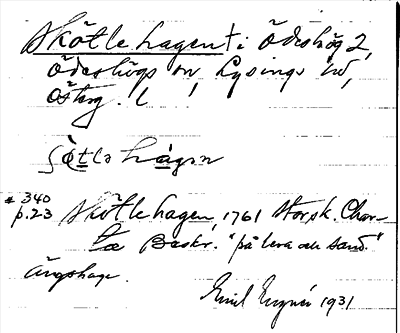 Skötlehagen t i Ödeshög 2,
Ödeshögs sn, Lysings hd,
Österg. l
ʃö̀tlə hàgən
# 340
p. 23 Skötlehagen, 1761 Storsk. Char-
ta Beskr. "på lera och sand."
Ängshage.
Emil 1931